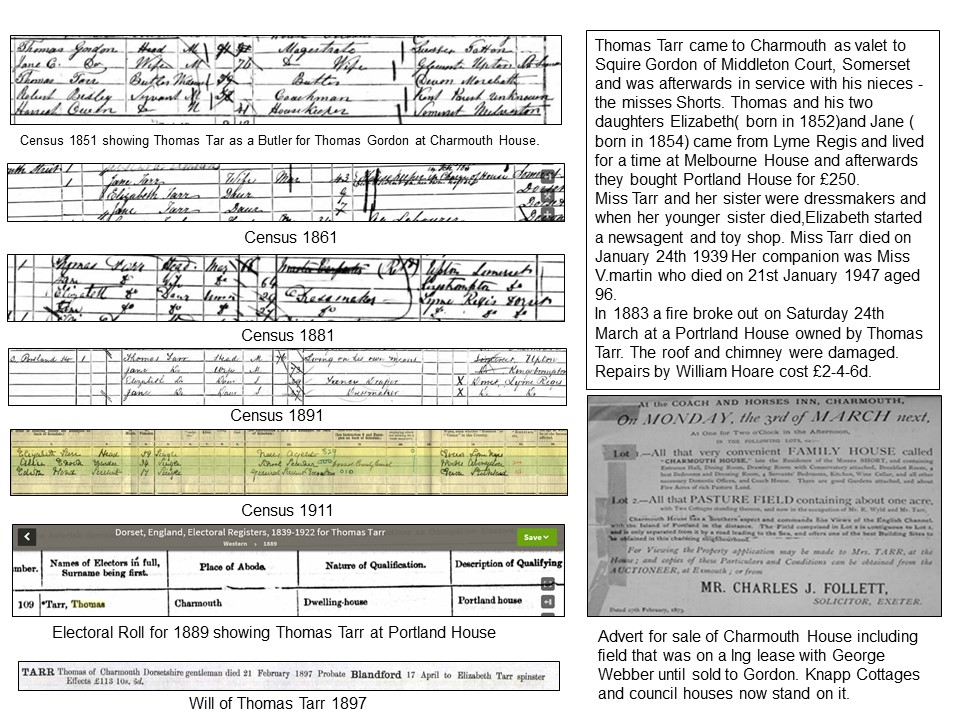 Thomas Gordon Head M Magistrate
Jane C. Do Wife M 76 Do Wife
Thomas Tarr Butler Butler Devon Morebath
Robert Servant Coachman Kent Parish Unknown
Do Housekeeper Somerset
Census 1851 showing Thomas Tar as a Butler for Thomas Gordon at Charmouth House.
1 Jane Tarr Wife Mar 43
Elizabeth Tarr Daur 9
Jane Tarr Daur 7
Census 1861
1 Thomas Tarr Head Mar Upton Somerset
Jane Do 64
Elizabeth Do Daur 29 Dressmaker Lyme Regis Dorset
Jane Do
Census 1881
Portland Ho 1 Thomas Tarr Head M Living on his own means Somerset, Upton
Jane Do Wife M
Elizabeth Do Daur S Fancy Draper X Dorset, Lyme Regis
Jane Do Daur S Dressmaker X Do Do
Census 1891
Elizabeth Tarr Head 59 Single News Agent
Single
Servant 17 Single General Servant
Census 1911
Dorset, England, Electoral Registers, 1839-1922 for Thomas Tarr
Western › 1889
Save
mber. Names of Electors in full, Surname being first. Place of Abode. Nature of Qualification. Description of Qualifying
109 *Tarr, Thomas Charmouth Dwelling-house Portland house
Electoral Roll for 1889 showing Thomas Tarr at Portland House
TARR Thomas of Charmouth Dorsetshire gentleman died 21 February 1897 Probate Blandford 17 April to Elizabeth Tarr spinster
Effects £113 10s. 6d.
Will of Thomas Tarr 1897
Thomas Tarr came to Charmouth as valet to
Squire Gordon of Middleton Court, Somerset
and was afterwards in service with his nieces -
the misses Shorts. Thomas and his two
daughters Elizabeth( born in 1852)and Jane (
born in 1854) came from Lyme Regis and lived
for a time at Melbourne House and afterwards
they bought Portland House for £250.
Miss Tarr and her sister were dressmakers and
when her younger sister died,Elizabeth started
a newsagent and toy shop. Miss Tarr died on
January 24th 1939 Her companion was Miss
V.martin who died on 21st January 1947 aged
96.
In 1883 a fire broke out on Saturday 24th
March at a Portrland House owned by Thomas
Tarr. The roof and chimney were damaged.
Repairs by William Hoare cost £2-4-6d.
At the COACH AND HORSES INN, CHARMOUTH,
On MONDAY, the 3rd of MARCH next,
At One for Two o'Clock in the Afternoon,
IN THE FOLLOWING LOTS, viz:-
Lot 1.—All that very convenient FAMILY HOUSE called
"CHARMOUTH HOUSE," late the Residence of the Misses SHORT, and containing
Entrance Hall, Dining Room, Drawing Room with Conservatory attached, Breakfast Room,
best Bedrooms and Dressing Room, Servants' Bedrooms, Kitchen, Wine Cellar, and all other
necessary Domestic Offices, and Coach House. There are good Gardens attached, and about
Five Acres of rich Pasture Land.
Lot 2.—All that PASTURE FIELD containing about one acre,
with Two Cottages standing thereon, and now in the occupation of Mr. R. Wyld and Mr. Tarr,
Charmouth House has a Southern aspect and commands fine Views of the English Channel,
with the Island of Portland in the distance. The Field comprised in Lot 2 is contiguous to Lot 1,
and is only separated from it by a road leading to the Sea, and offers one of the best Building Sites to
be obtained in this charming neighbourhood.
For Viewing the Property application may be made to Mrs. TARR, at the
House; and copies of these Particulars and Conditions can be obtained from the
AUCTIONEER, at Exmouth; or from
MR. CHARLES J. FOLLETT,
SOLICITOR, EXETER.
Dated 17th February, 1873.
Advert for sale of Charmouth House including
field that was on a lng lease with George
Webber until sold to Gordon. Knapp Cottages
and council houses now stand on it.